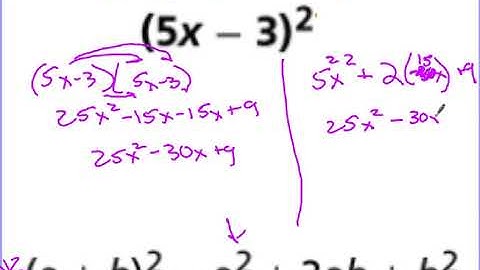 (5x − 3)²
(5x-3)(5x-3)
25x²-15x-15x+9
25x²-30x+9
5x²² + 2(15 x) +9
25x² - 30x
(a + b)² = a² + 2ab + b²